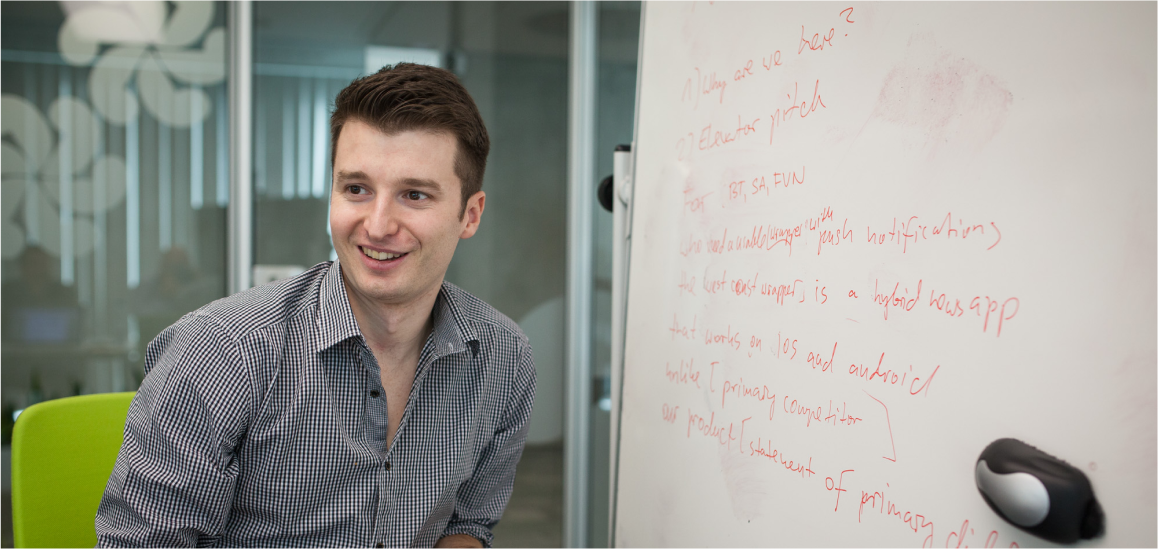 1) Why are we here?
2) Elevator pitch
For BT, SA, FUN
with push notifications
the west const wrapper, is a hybrid news app
that works on ios and android
unlike [primary competitor
our product [statement of primary